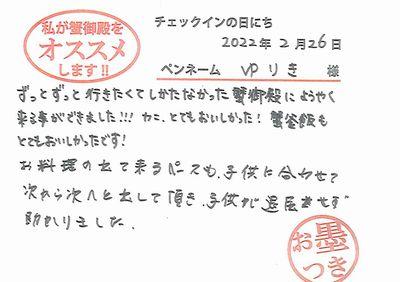 私が蟹御殿を
オススメ
します!!
チェックインの日にち
2022年2月26日
ペンネーム VPりき 様
ずっとずっと行きたくてしかたなかった蟹御殿にようやく
来る事ができました!!! カニ、とてもおいしかった! 蟹釜飯も
とてもおいしかったです!
お料理の出て来るペースも、子供に合わせて
次から次へと出して頂き、子供が退屈せず
助かりました。
お墨
つき